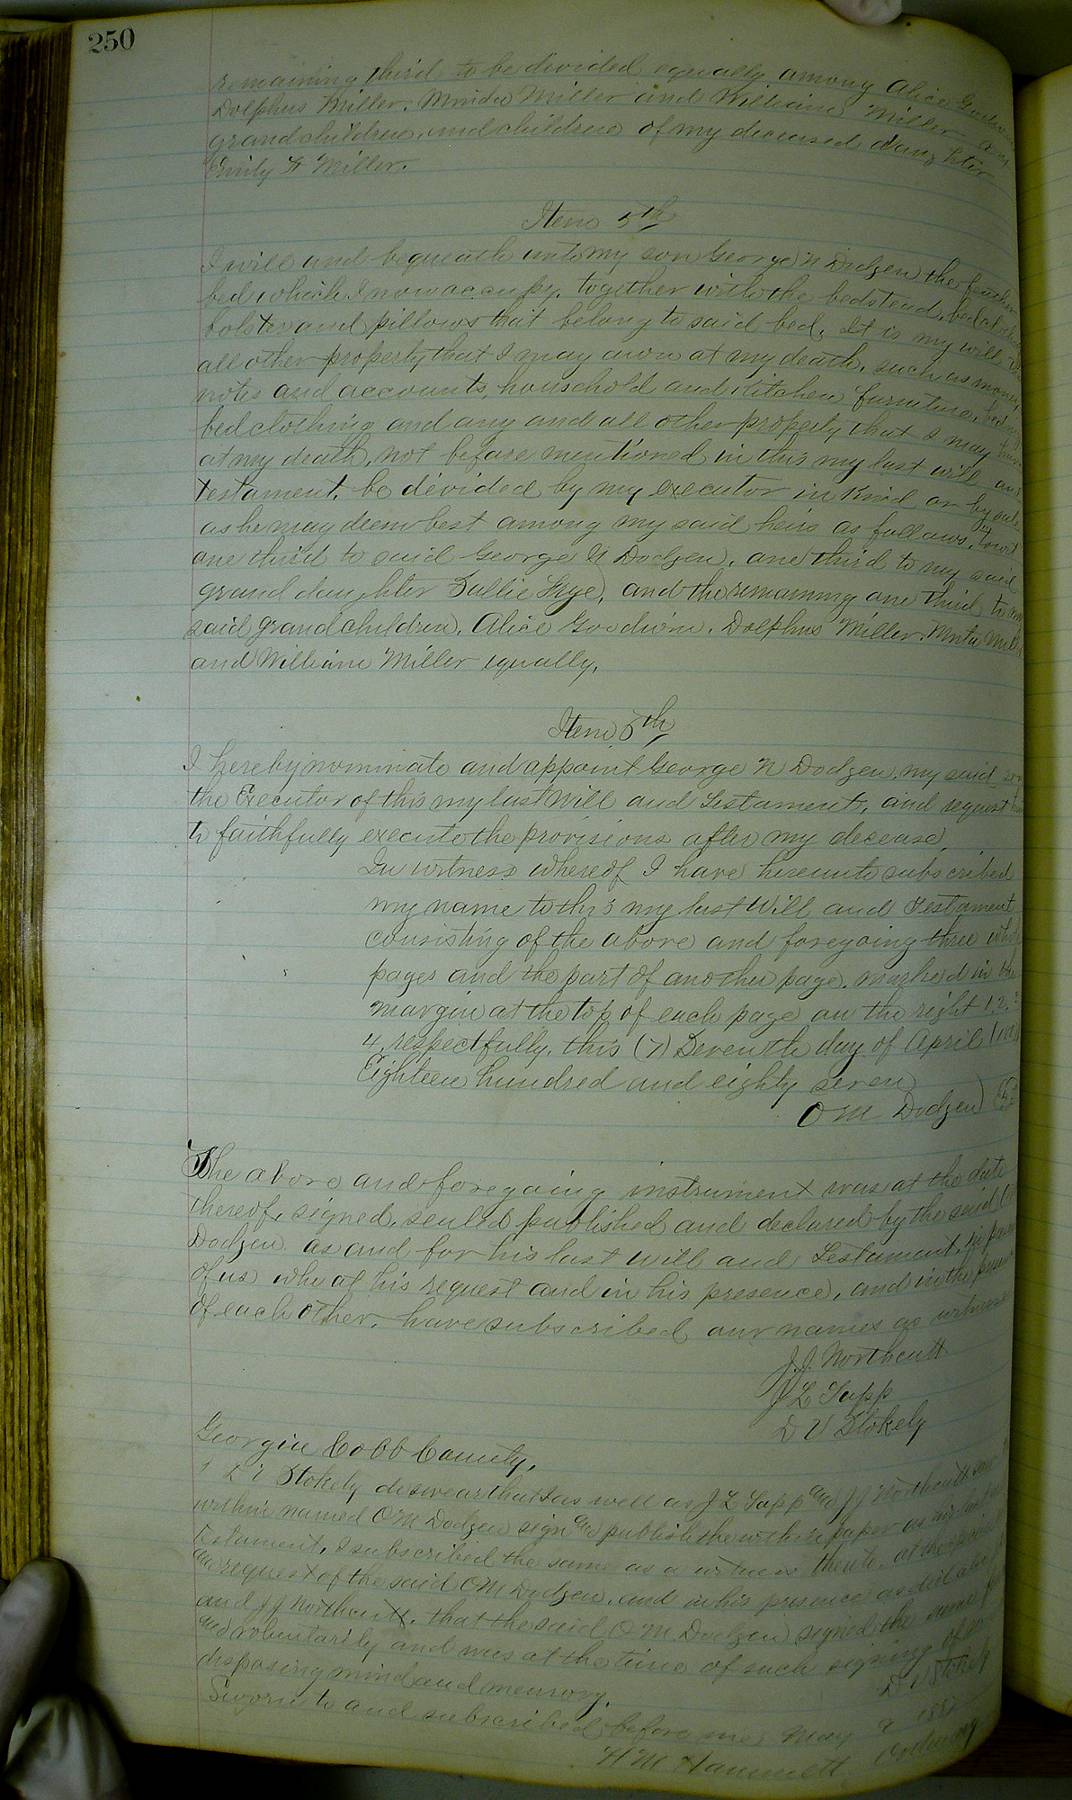 250
remaining third to be divided equally among Alice Goodwin
Dolphus Miller, Minda Miller and William Miller my
grandchildren, and children of my deceased daughter
Emily F Miller.
Item 5th
I will and bequeath unto my son George N Dodgen the feather
bed which I now occupy, together with the bedstead, bed clothes
bolster and pillows that belong to said bed. It is my will that
all other property that I may own at my death, such as money,
notes and accounts, household and kitchen furniture, beds
bed clothing and any and all other property that I may have
at my death, not before mentioned in this my last will and
testament, be devided by my executor in kind or by sale
as he may deem best among my said heirs as follows, towit
one third to said George N Dodgen, one third to my said
grand daughter Dallie Frye, and the remaining one third to my
said grandchildren, Alice Goodwin, Dolphus Miller, Minta Miller
and William Miller equally.
Item 6th
I hereby nominate and appoint George N Dodgen, my said son
the Executor of this my last Will and Testament, and request him
to faithfully execute the provisions after my decease.
In witness whereof I have hereunto subscribed
my name to this my last Will and Testament
consisting of the above and foregoing three whole
pages and the part of another page, marked in the
margin at the top of each page on the right 1, 2, 3
4, respectfully, this (7) Seventh day of April
Eighteen hundred and eighty seven
O M Dodgen
The above and foregoing instrument was at the date
thereof, signed, sealed published and declared by the said
Dodgen as and for his last will and Testament, in presence
of us who at his request and in his presence, and in the presence
of each other, have subscribed our names as witnesses
J. J. Northcutt
J L Sapp
D V Stokely
Georgia Cobb County,
I D V Stokely do swear that I as well as J L Sapp and J J Northcutt saw
within named O M Dodgen sign and publish the within paper as his last
testament, I subscribed the same as a witness thereto at the special
and request of the said O M Dodgen, and in his presence as did also
and J J Northcutt, that the said O M Dodgen signed the same freely
and voluntarily and was at the time of such signing of sound
disposing mind and memory.
D V Stokely
Sworn to and subscribed before me May 9 1887
H M Hammett Ordinary